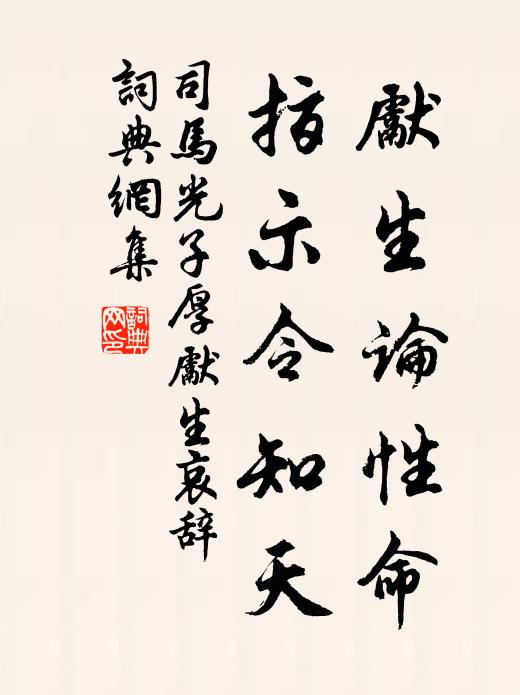 獻生論性命
指示令知天
司馬光子厚獻生哀辞
詞典網集
詞典
网印